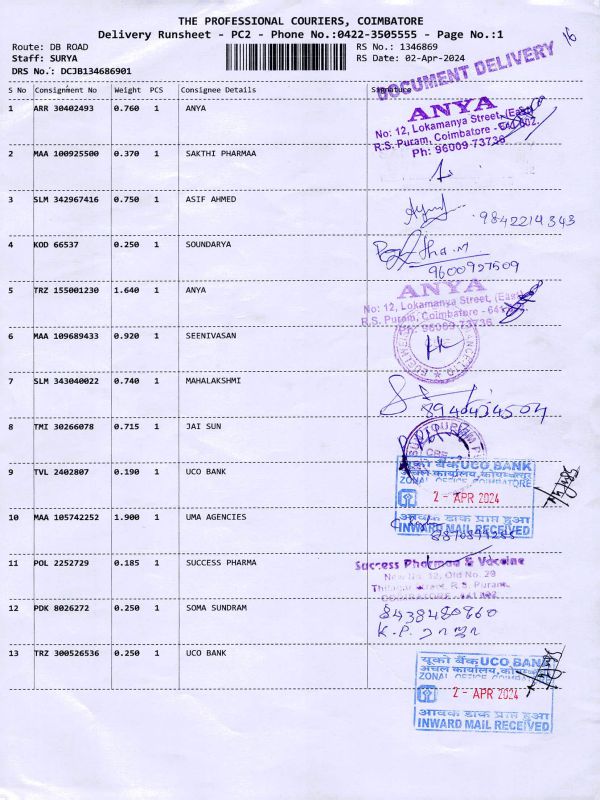 THE PROFESSIONAL COURIERS, COIMBATORE
Delivery Runsheet - PC2 - Phone No.:0422-3505555 - Page No.:1
Route: DB ROAD RS No.: 1346869
Staff: SURYA RS Date: 02-Apr-2024
DRS No.: DCJB134686901
16
DOCUMENT DELIVERY
S No Consignment No Weight PCS Consignee Details Signature
1 ARR 30402493 0.760 1 ANYA
ANYA
No: 12, Lokamanya Street, (East)
R.S. Puram, Coimbatore - 641 002.
Ph: 96009 73736
2 MAA 100925500 0.370 1 SAKTHI PHARMAA
3 SLM 342967416 0.750 1 ASIF AHMED
9842214343
4 KOD 66537 0.250 1 SOUNDARYA
9600927509
5 TRZ 155001230 1.640 1 ANYA
ANYA
No: 12, Lokamanya Street, (East)
R.S. Puram, Coimbatore - 641
Ph: 96009 73736
6 MAA 109689433 0.920 1 SEENIVASAN
7 SLM 343040022 0.740 1 MAHALAKSHMI
8 TMI 30266078 0.715 1 JAI SUN
9 TVL 2402807 0.190 1 UCO BANK
यूको बैंक UCO BANK
अंचल कार्यालय, कोयम्बत्तूर
ZONAL OFFICE, COIMBATORE
2 - APR 2024
आवक डाक प्राप्त हुआ
INWARD MAIL RECEIVED
10 MAA 105742252 1.900 1 UMA AGENCIES
11 POL 2252729 0.185 1 SUCCESS PHARMA
Success Pharmaa & Vaccine
New No. 12, Old No. 29
12 PDK 8026272 0.250 1 SOMA SUNDRAM
8438480860
K.P. ராஜா
13 TRZ 300526536 0.250 1 UCO BANK
यूको बैंक UCO BANK
अंचल कार्यालय, कोयम्बत्तूर
ZONAL OFFICE, COIMBATORE
2 - APR 2024
आवक डाक प्राप्त हुआ
INWARD MAIL RECEIVED